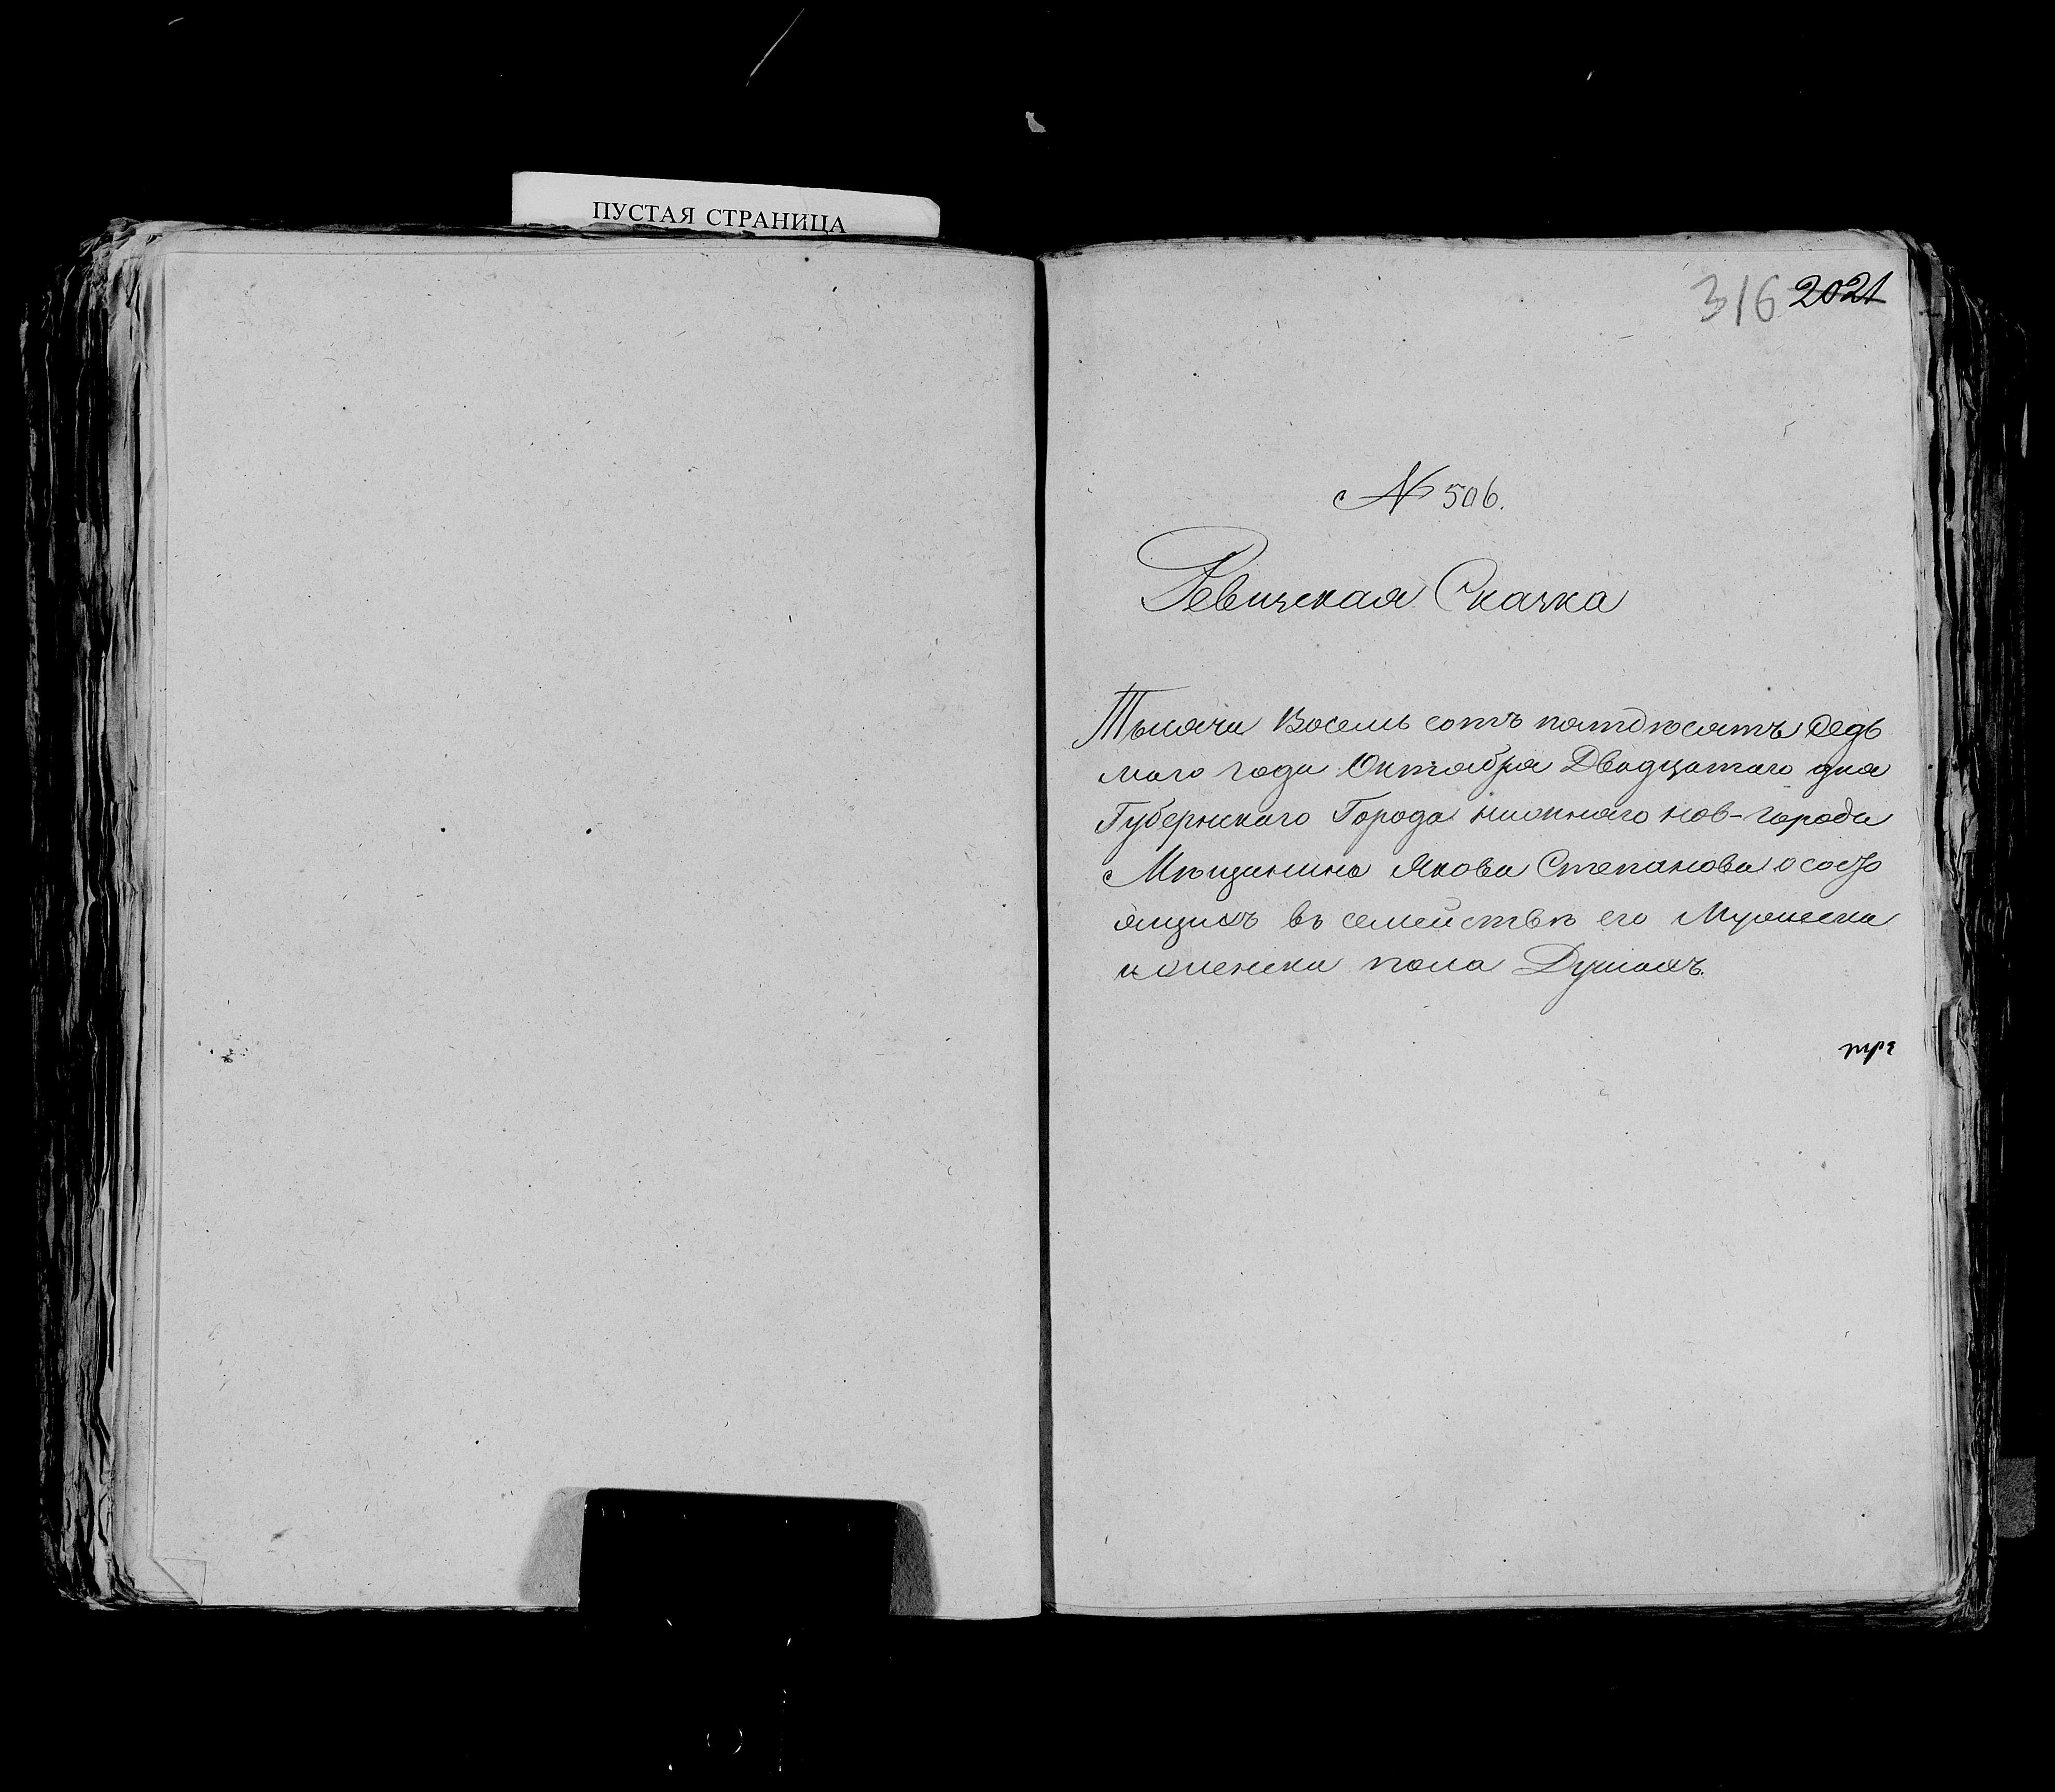 ПУСТАЯ СТРАНИЦА
316 2021
№ 506.
Ревизская Сказка
Тысяча Восемь сотъ пятдѣсятъ седь
маго года Октября Двадцатаго дня
Губернскаго Города нижняго нов-города
Мѣщанина Якова Степанова о состо
ящихъ въ семействѣ его Мужеска
и женска пола Душахъ.